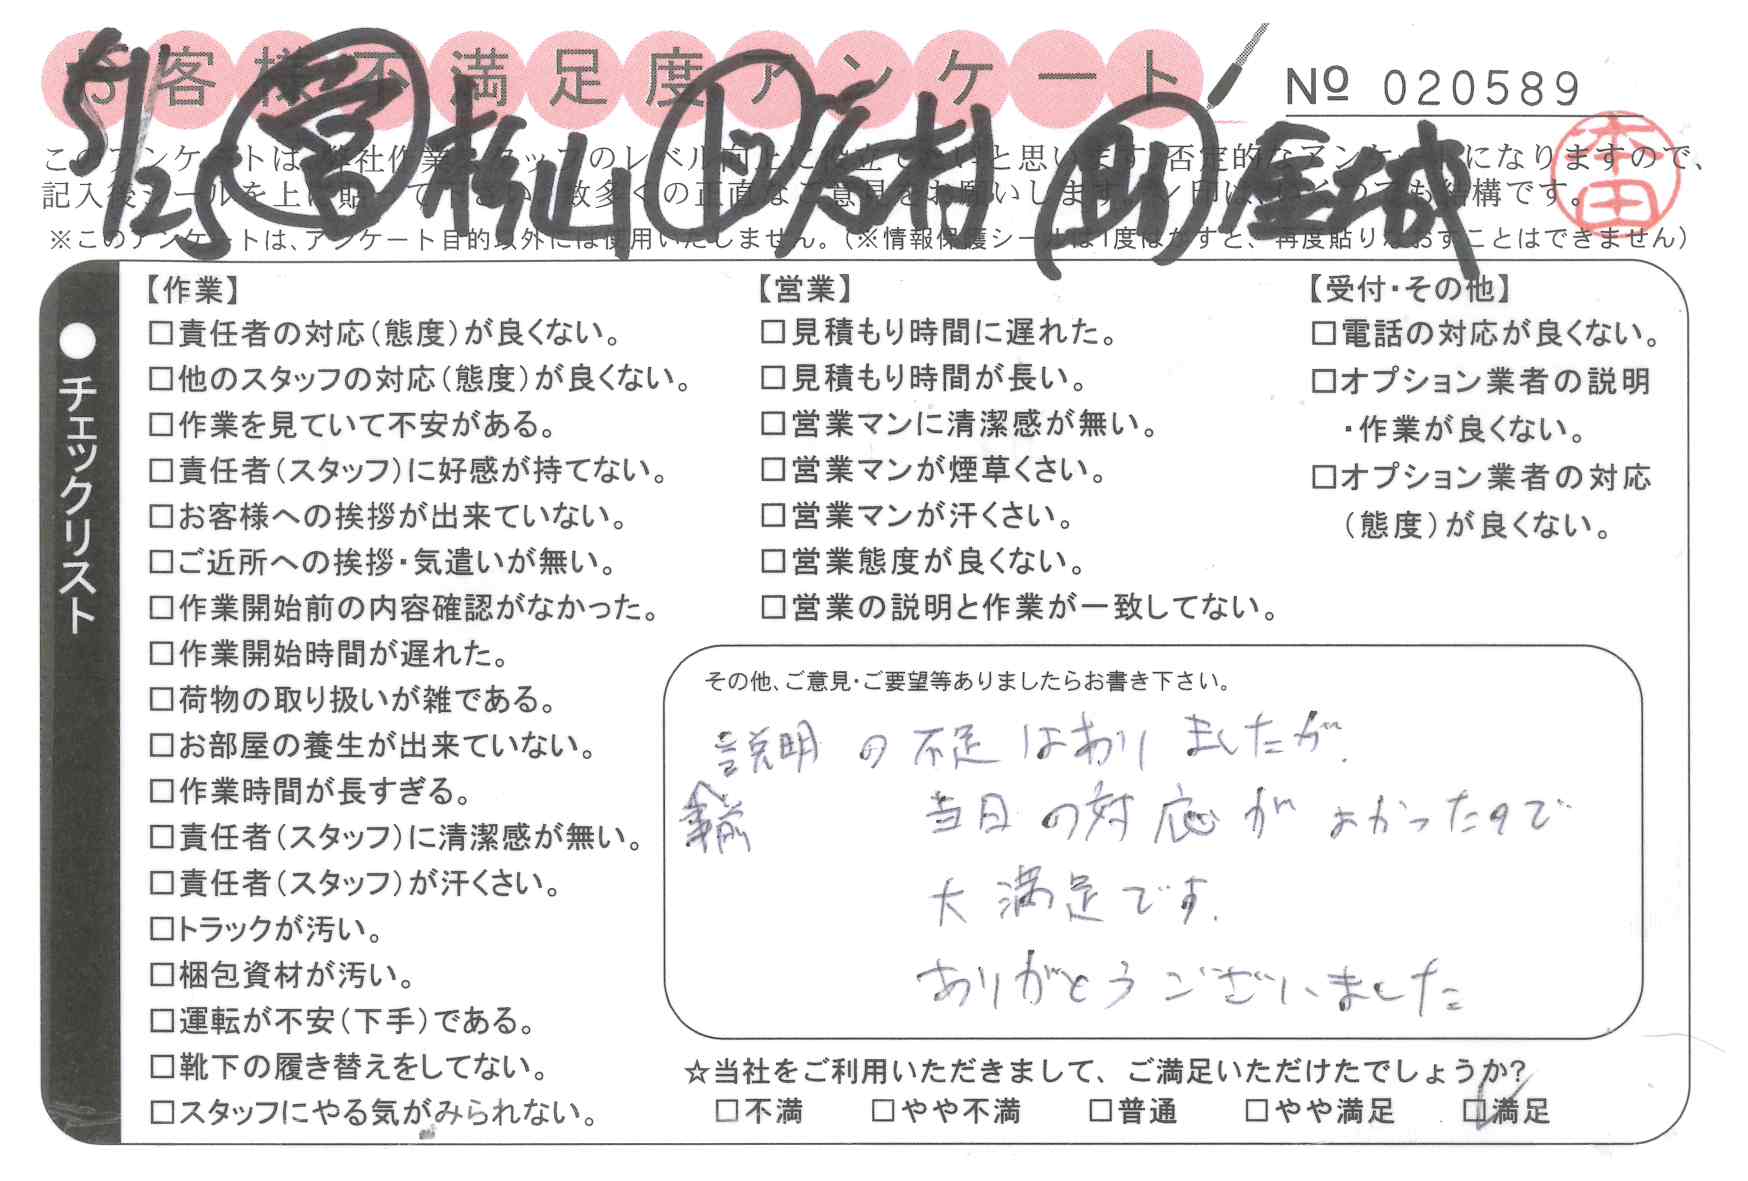 お客様不満足度アンケート
№ 020589
5/25 営 杉山 ド 志村 助 金城
本田
このアンケートは、弊社作業スタッフのレベル向上に役立てたいと思います。否定的なアンケートになりますので、
記入後シールを上に貼って下さい。数多くの正直なご意見をお願いします。レ印は、いくつでも結構です。
※このアンケートは、アンケート目的以外には使用いたしません。(※情報保護シールは1度はがすと、再度貼りなおすことはできません)
●チェックリスト
【作業】
□責任者の対応(態度)が良くない。
□他のスタッフの対応(態度)が良くない。
□作業を見ていて不安がある。
□責任者(スタッフ)に好感が持てない。
□お客様への挨拶が出来ていない。
□ご近所への挨拶・気遣いが無い。
□作業開始前の内容確認がなかった。
□作業開始時間が遅れた。
□荷物の取り扱いが雑である。
□お部屋の養生が出来ていない。
□作業時間が長すぎる。
□責任者(スタッフ)に清潔感が無い。
□責任者(スタッフ)が汗くさい。
□トラックが汚い。
□梱包資材が汚い。
□運転が不安(下手)である。
□靴下の履き替えをしてない。
□スタッフにやる気がみられない。
【営業】
□見積もり時間に遅れた。
□見積もり時間が長い。
□営業マンに清潔感が無い。
□営業マンが煙草くさい。
□営業マンが汗くさい。
□営業態度が良くない。
□営業の説明と作業が一致してない。
【受付・その他】
□電話の対応が良くない。
□オプション業者の説明
・作業が良くない。
□オプション業者の対応
(態度)が良くない。
その他、ご意見・ご要望等ありましたらお書き下さい。
説明の不足はありましたが、
事前
当日の対応がよかったので
大満足です。
ありがとうございました
☆当社をご利用いただきまして、ご満足いただけたでしょうか?
□不満 □やや不満 □普通 □やや満足 □満足